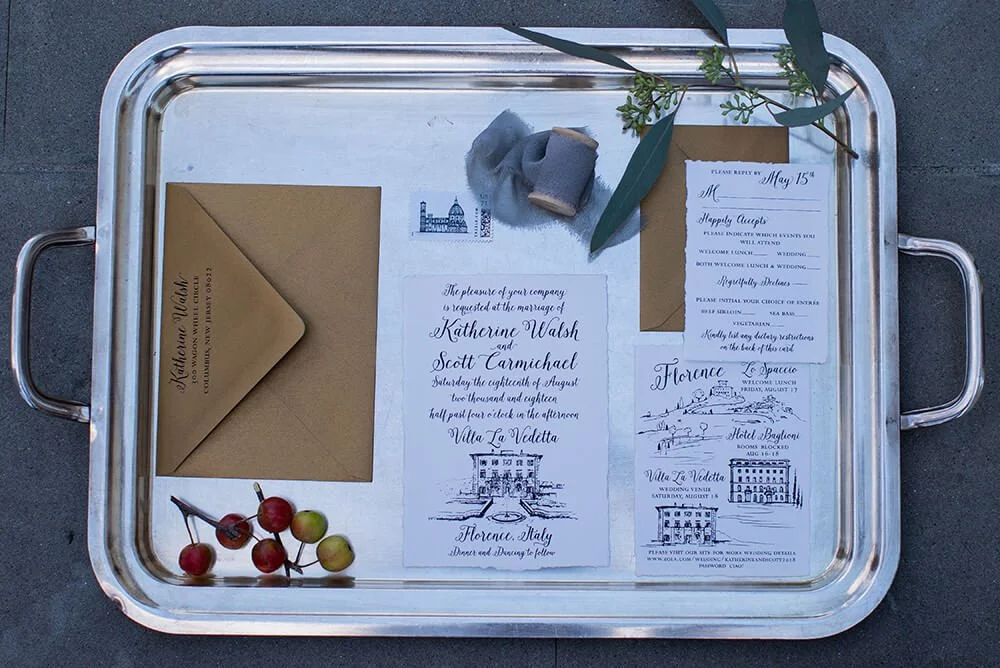 Katherine Walsh
300 WAGON WHEEL CIRCLE
COLUMBUS, NEW JERSEY 08022
The pleasure of your company
is requested at the marriage of
Katherine Walsh
and
Scott Carmichael
Saturday the eighteenth of August
two thousand and eighteen
half past four o'clock in the afternoon
Villa La Vedetta
Florence, Italy
Dinner and Dancing to follow
PLEASE REPLY BY May 15th
M
Happily Accepts
PLEASE INDICATE WHICH EVENTS YOU
WILL ATTEND
WELCOME LUNCH WEDDING
BOTH WELCOME LUNCH & WEDDING
Regretfully Declines
PLEASE INITIAL YOUR CHOICE OF ENTRÉE
BEEF SIRLOIN SEA BASS
VEGETARIAN
Kindly list any dietary restrictions
on the back of this card
Florence
Lo Spaccio
WELCOME LUNCH
FRIDAY, AUGUST 17
Hotel Baglioni
ROOMS BLOCKED
AUG 16-18
Villa La Vedetta
WEDDING VENUE
SATURDAY, AUGUST 18
PLEASE VISIT OUR SITE FOR MORE WEDDING DETAILS
WWW.ZOLA.COM/WEDDING/KATHERINEANDSCOTT2018
PASSWORD: CIAO!